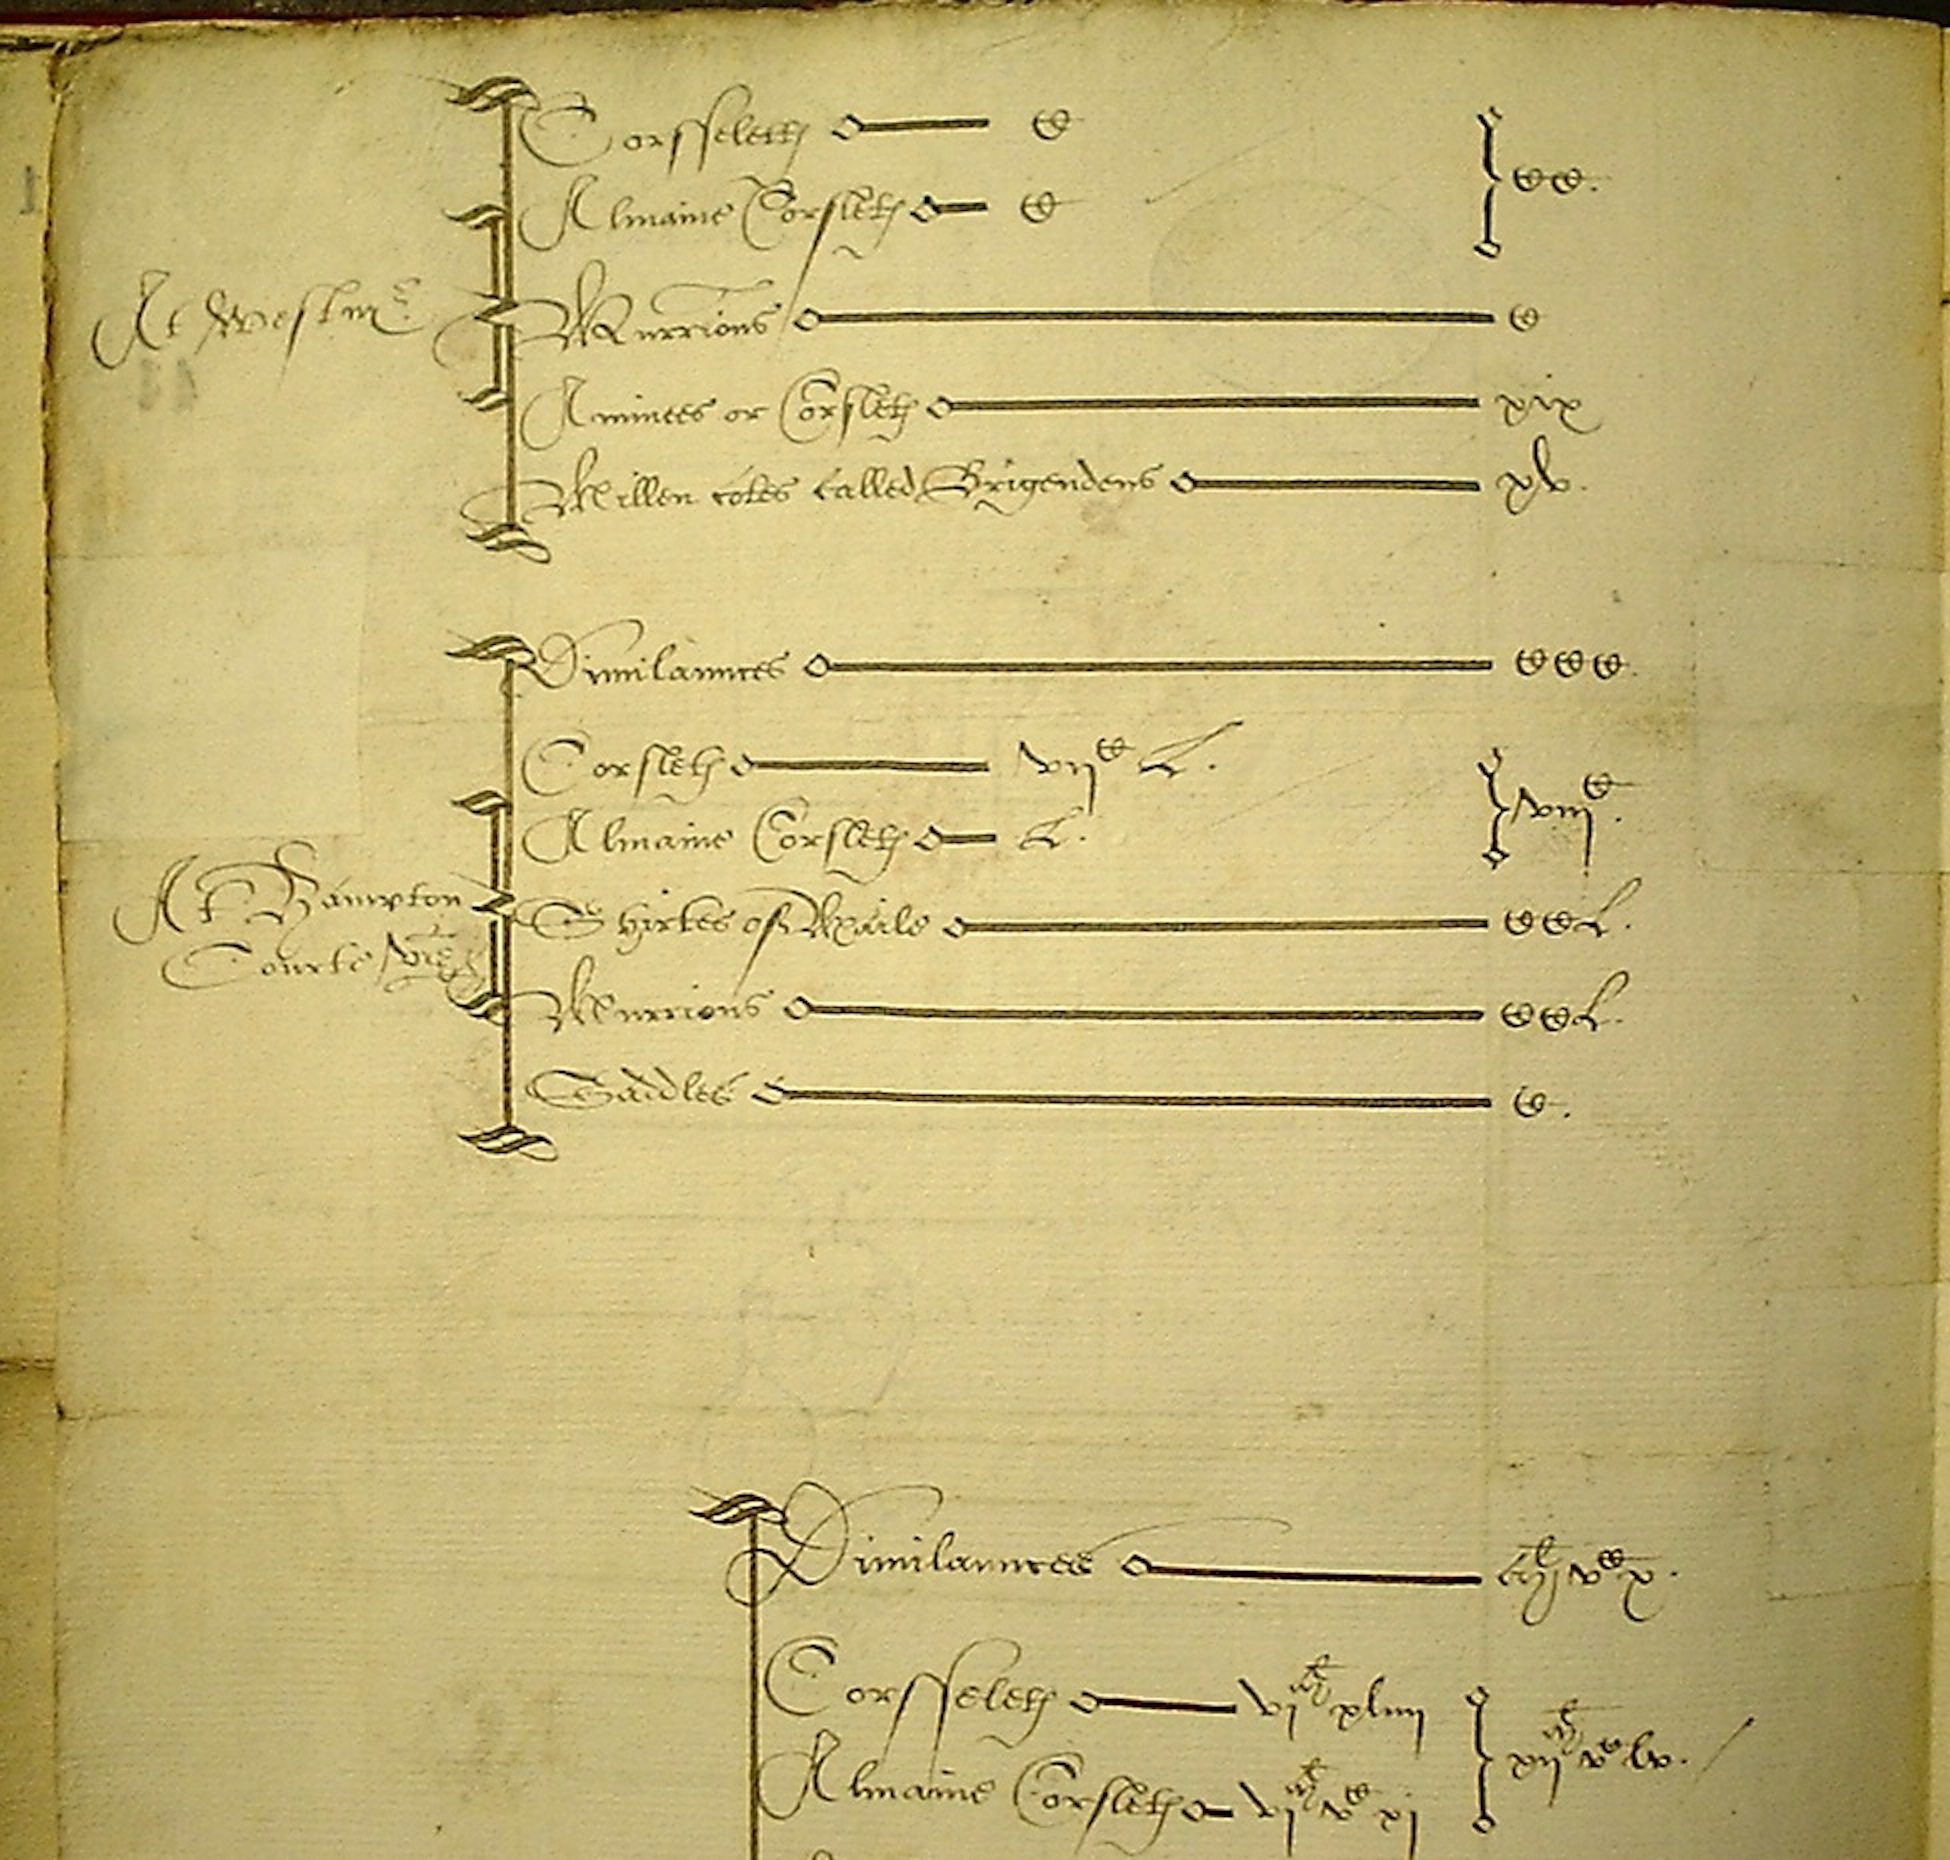 Corsseletℓ C
Almaine Corsletℓ C
CC.
At Westmr
Murrions C
Aminees or Corsletℓ xix
Millen cotes called Brigendens xv.
Dimilaunces CCC.
Corsletℓ vijC L.
Almaine Corsletℓ L.
viijC.
At Hampton
Courte viz
Shirtes of Maile CCL.
Murrions CCL.
Saddles C.
Dimilaunces Ml vC x.
Corsseletℓ vjMl xliiij
Almaine Corsletℓ vjMl vC xj
xijMl vC lv.